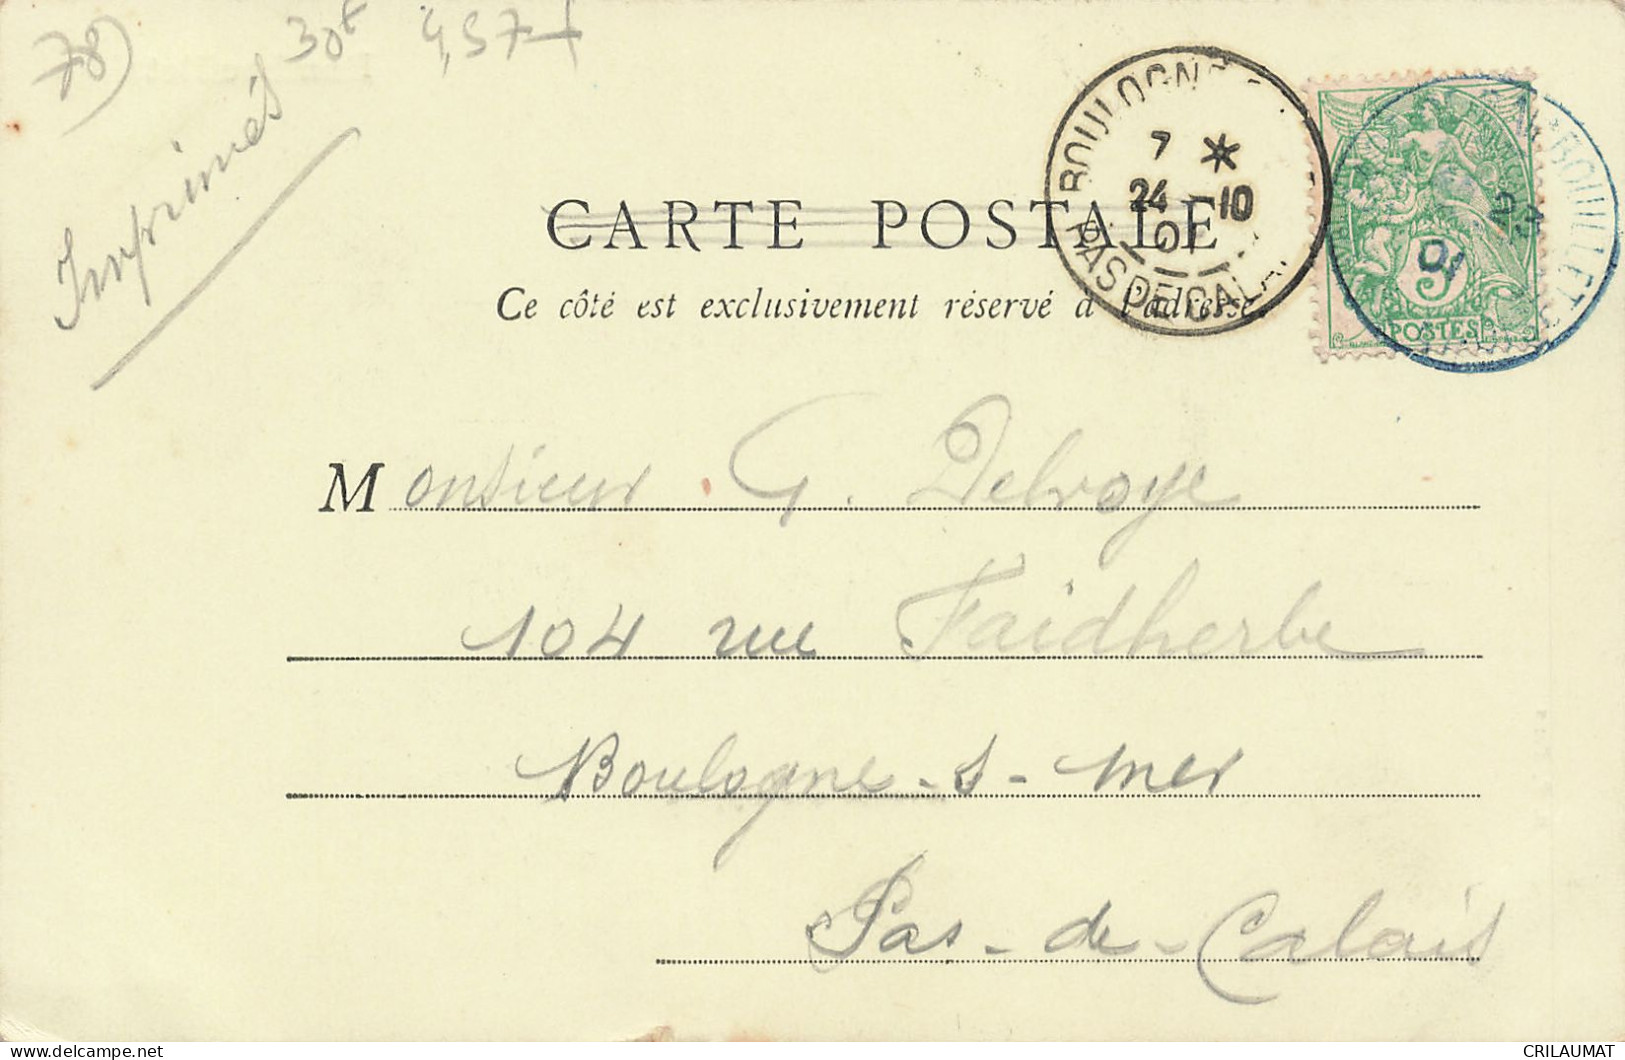 78)
30f
Imprimés
CARTE POSTALE
Ce côté est exclusivement réservé à l'adresse.
BOULOGNE
7 *
24 -10
01
PAS DE CALA
23
01
5
POSTES
Monsieur G. Delroye
104 rue Faidherbe
Boulogne-s-mer
Pas-de-Calais
CRILAUMAT